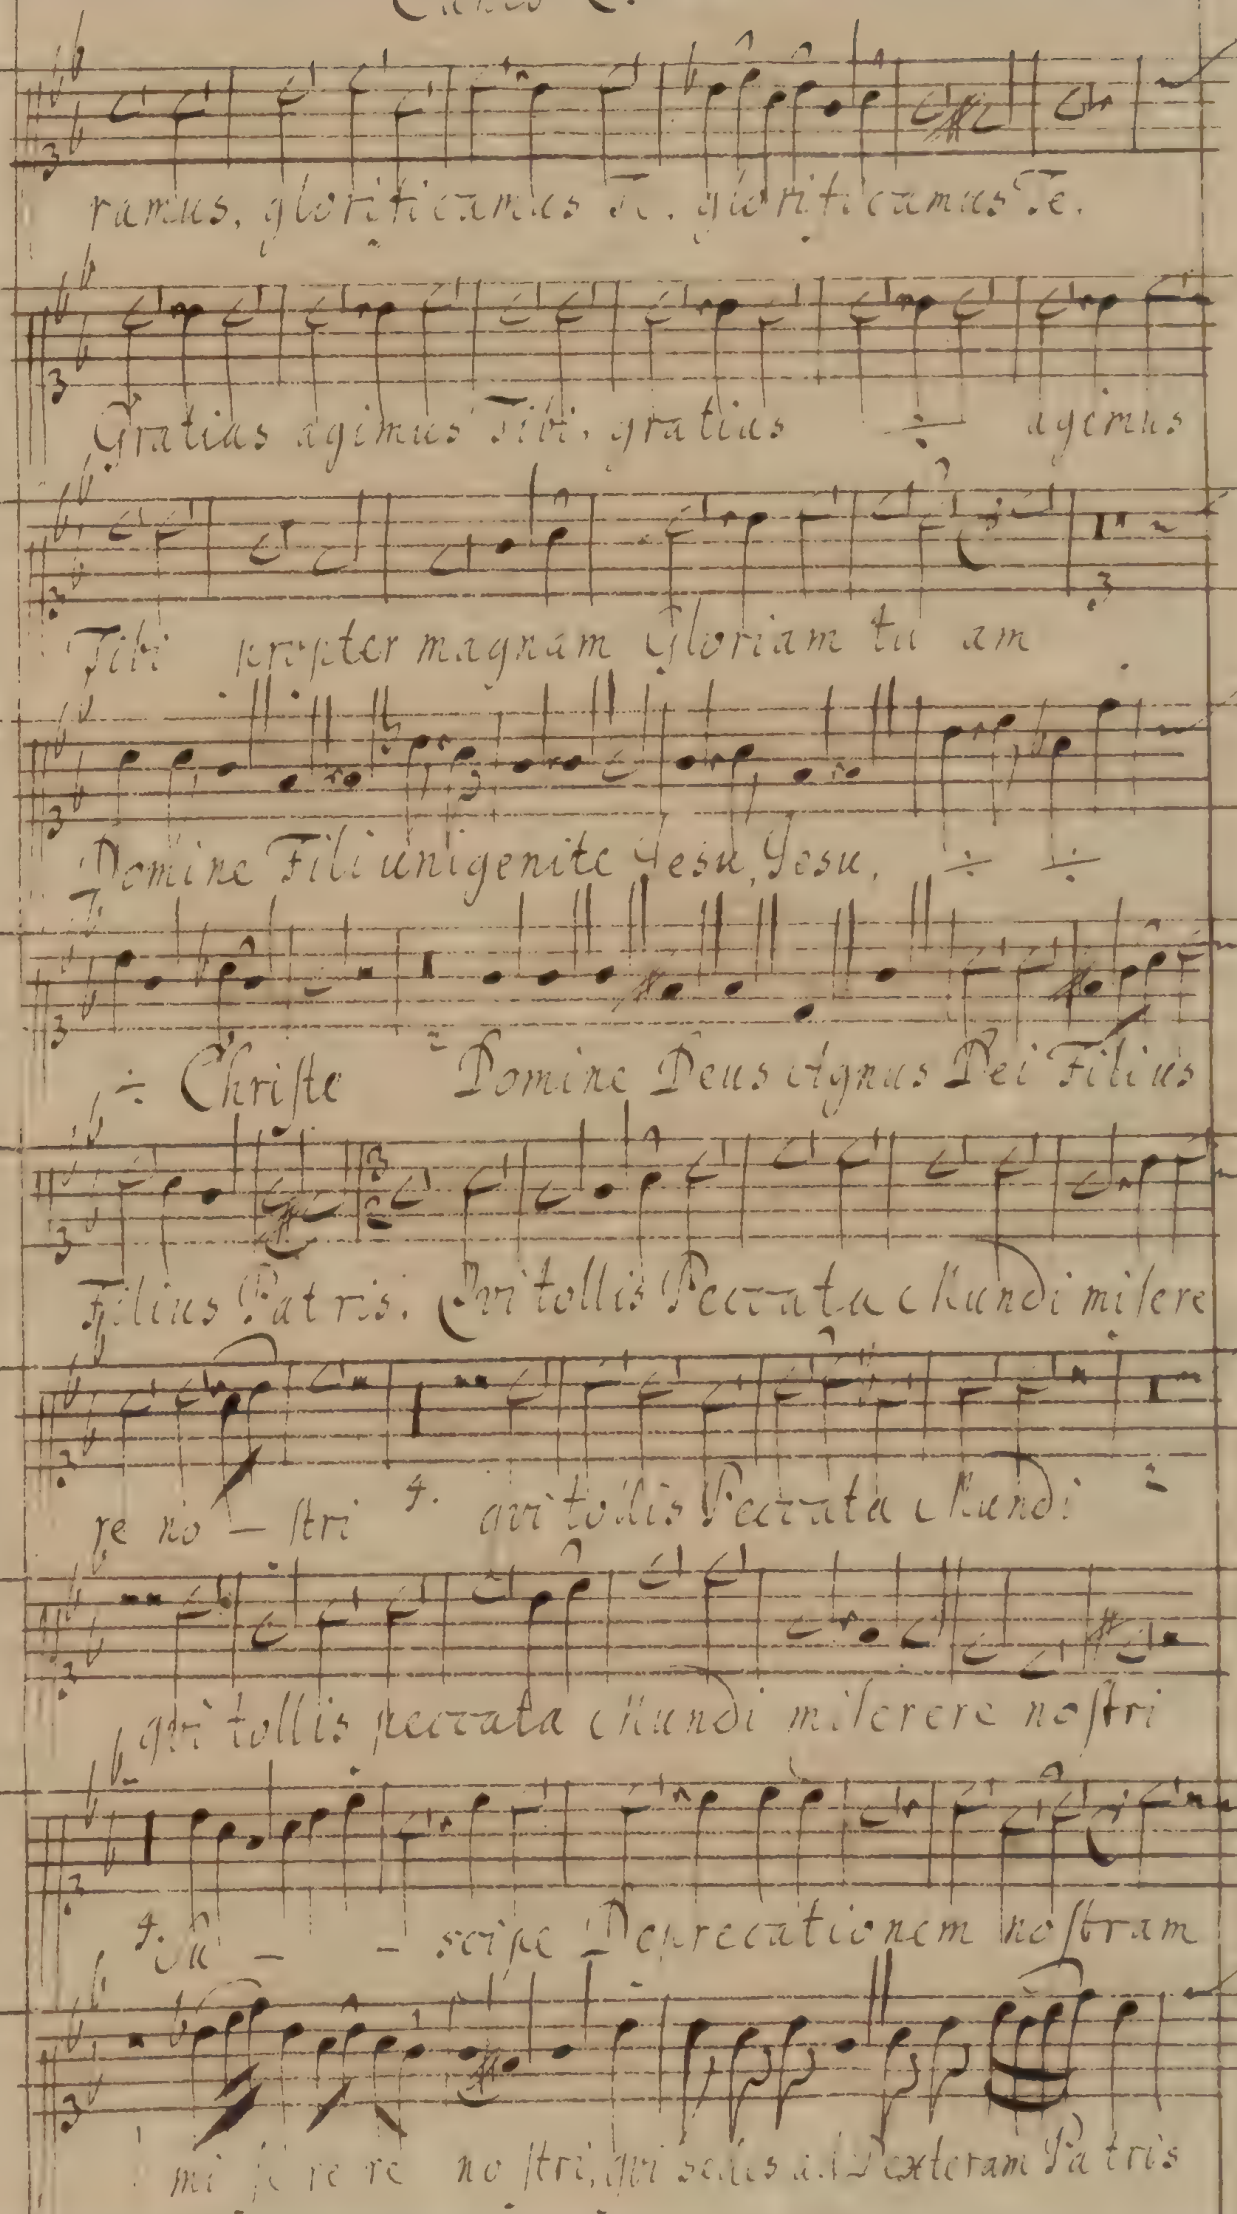 Canto
ramus, glorificamus Te, glorificamus Te.
Gratias agimus Tibi, gratias ÷ agimus
Tibi propter magnam Gloriam tu am
3
Domine Fili unigenite Yesu, Yesu, ÷ ÷
÷ Chriſte 2 Domine Deus Agnus Dei Filius
Filius Patris. Qvi tollis Peccata Mundi miſere
re no – ſtri 4. qvi tollis Peccata Mundi 2
qvi tollis peccata Mundi miſerere noſtri
4. Su – – scipe Deprecationem noſtram
mi ſe re re no ſtri, qvi sedes ad Dexteram Patris